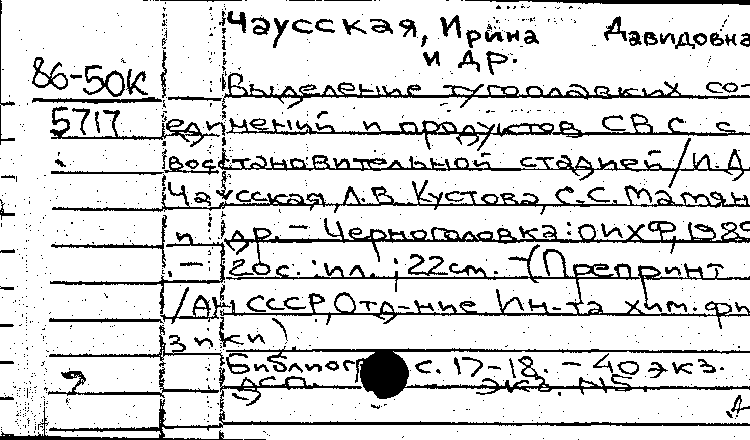 Чаусская, Ирина Давидовна
и др.
86-50К
Выделение тугоплавких со-
5717
единений и продуктов СВС с
восстановительной стадией / И.Д.
Чаусская, Л.В. Кустова, С.С. Мамян
и др. – Черноголовка: ОИХФ, 1989
. – 20 с. : ил. ; 22 см. – (Препринт
/ АН СССР, Отд-ние Ин-та хим. фи-
зики).
Библиогр с. 17-18. – 40 экз.
ДСП. экз. N5.